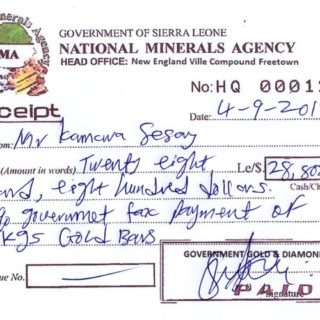 Minerals Agency
GOVERNMENT OF SIERRA LEONE
NMA
NATIONAL MINERALS AGENCY
HEAD OFFICE: New England Ville Compound Freetown
No: HQ 0001
ceipt
Date: 4-9-201
om: Mr Kamara Sesay
(Amount in words) Twenty eight Le/$ 28,80
and, eight hundred dollars. Cash/Ch
% governmet tax payment of
kgs Gold Bars
que No.:
GOVERNMENT GOLD & DIAMOND
Signature
PAID